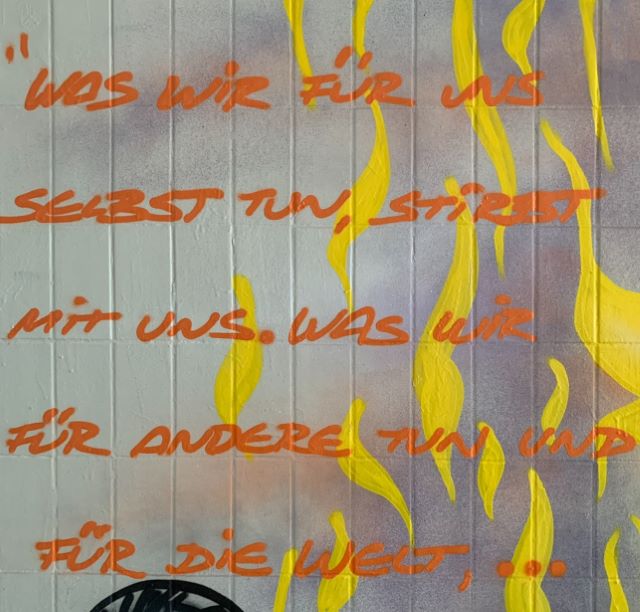 "WAS WIR FÜR UNS
SELBST TUN, STIRBT
MIT UNS. WAS WIR
FÜR ANDERE TUN UND
FÜR DIE WELT,...